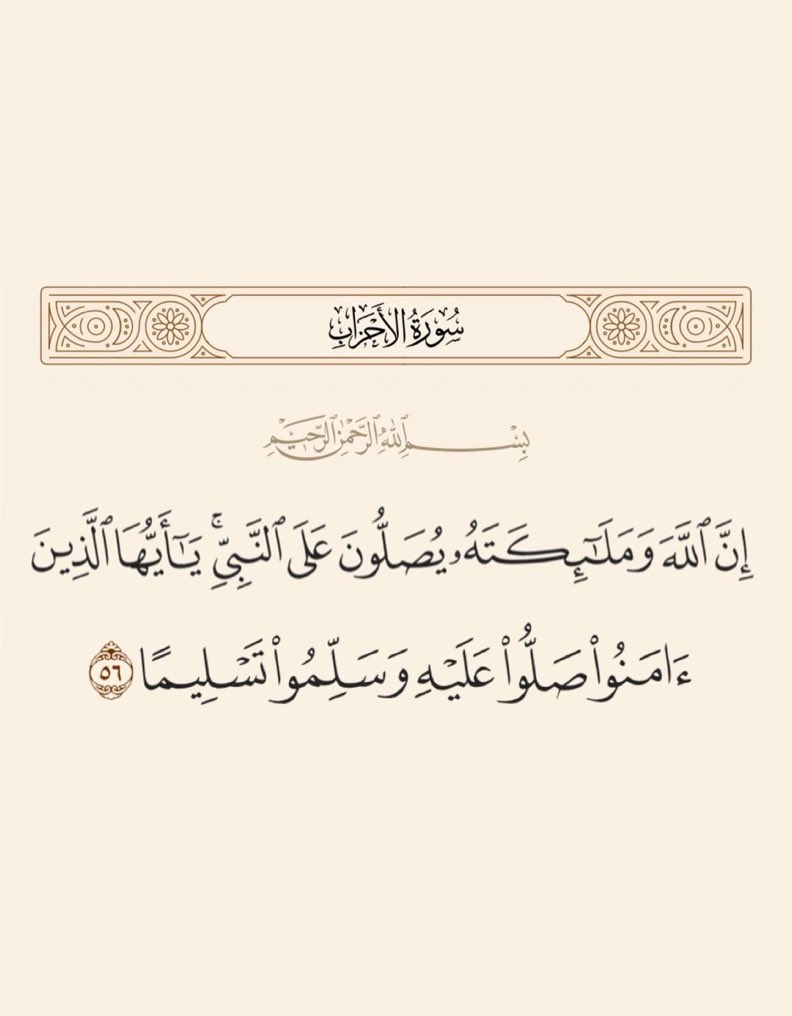 سُورَةُ الأَحْزَابِ
بِسْمِ ٱللَّهِ ٱلرَّحْمَٰنِ ٱلرَّحِيمِ
إِنَّ ٱللَّهَ وَمَلَـٰٓئِكَتَهُۥ يُصَلُّونَ عَلَى ٱلنَّبِىِّۚ يَـٰٓأَيُّهَا ٱلَّذِينَ
ءَامَنُوا۟ صَلُّوا۟ عَلَيْهِ وَسَلِّمُوا۟ تَسْلِيمًا ٥٦